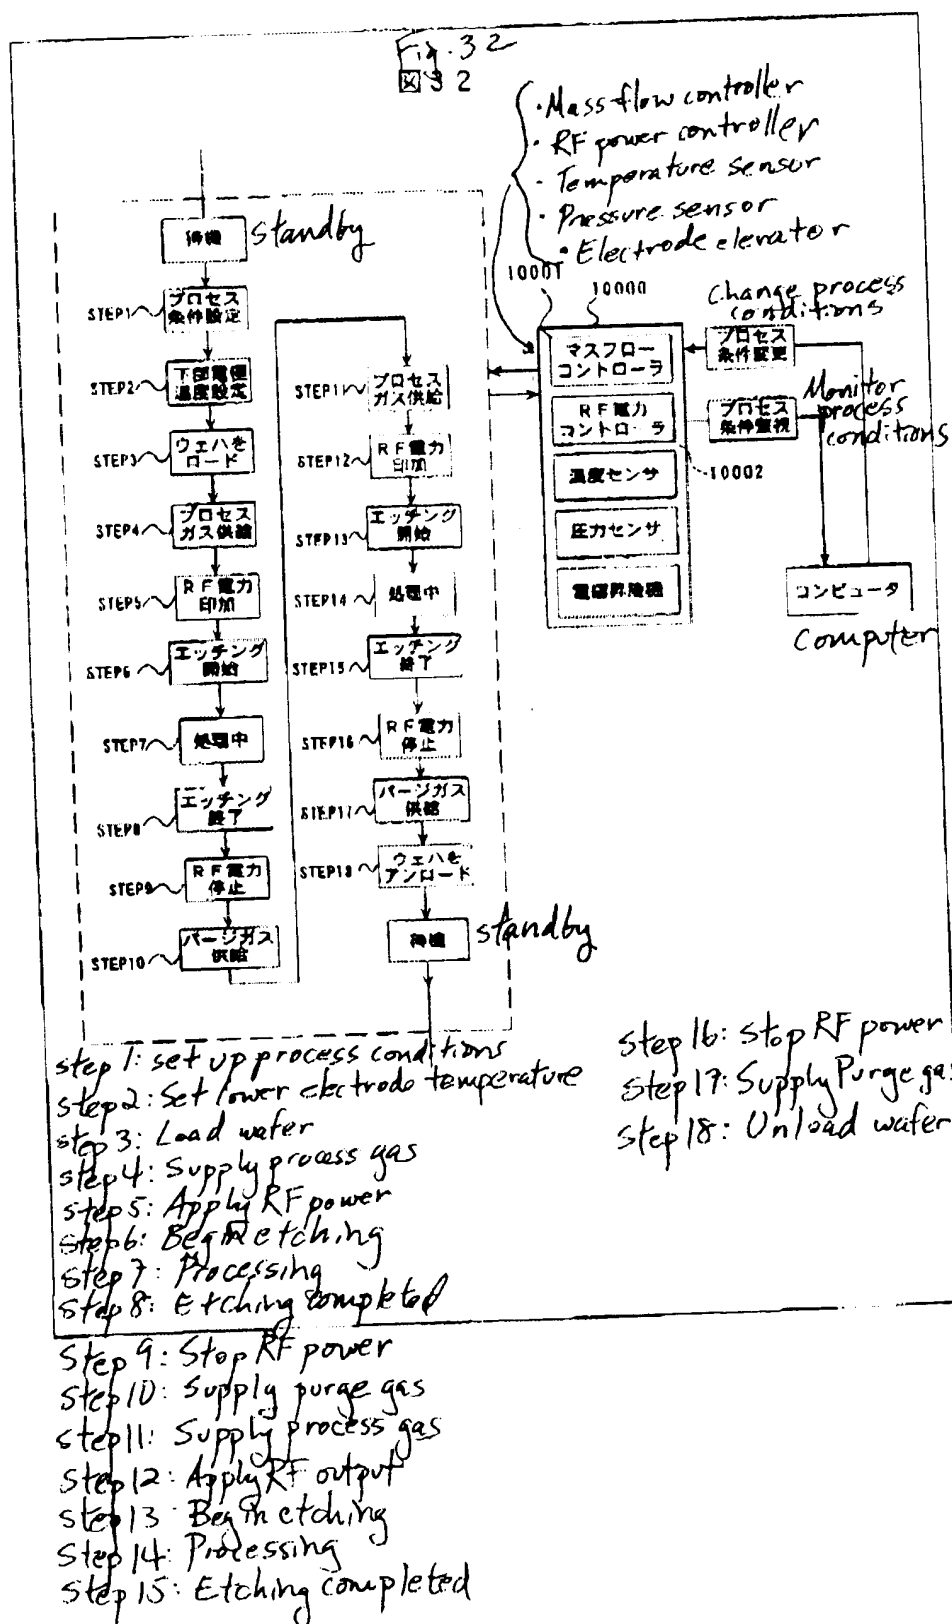 Fig. 32
図32
・Mass flow controller
・RF power controller
・Temperature sensor
・Pressure sensor
・Electrode elevator
待機
standby
STEP1
プロセス
条件設定
STEP2
下部電極
温度設定
STEP3
ウェハを
ロード
STEP4
プロセス
ガス供給
STEP5
RF電力
印加
STEP6
エッチング
開始
STEP7
処理中
STEP8
エッチング
終了
STEP9
RF電力
停止
STEP10
パージガス
供給
STEP11
プロセス
ガス供給
STEP12
RF電力
印加
STEP13
エッチング
開始
STEP14
処理中
STEP15
エッチング
終了
STEP16
RF電力
停止
STEP17
パージガス
供給
STEP18
ウェハを
アンロード
待機
standby
10001
10000
マスフロー
コントローラ
RF電力
コントローラ
温度センサ
圧力センサ
電極昇降機
10002
Change process
conditions
プロセス
条件変更
Monitor
process
conditions
プロセス
条件監視
コンピュータ
Computer
step 1: set up process conditions
step 2: Set lower electrode temperature
step 3: Load wafer
step 4: Supply process gas
step 5: Apply RF power
step 6: Begin etching
step 7: Processing
step 8: Etching completed
Step 9: Stop RF power
Step 10: Supply purge gas
step 11: Supply process gas
step 12: Apply RF output
step 13: Begin etching
Step 14: Processing
Step 15: Etching completed
step 16: Stop RF power
Step 17: Supply Purge gas
step 18: Unload wafer